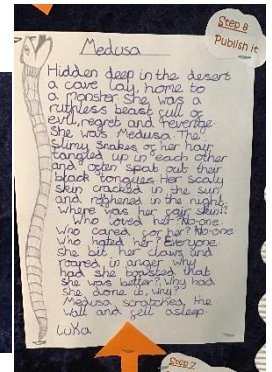 Step 8
Publish it
Medusa
Hidden deep in the desert
a cave lay, home to
a monster. She was a
ruthless beast full of
evil, regret and revenge.
She was Medusa. The
slimy snakes of her hair
tangled up in each other
and often spat out their
black tongues. Her scaly
skin cracked in the sun
and tightened in the night.
Where was her fair skin!?
Who loved her? No-one.
Who cared for her? No-one
Who hated her? Everyone.
She bit her claws and
roared in anger why
had she boasted that
she was better?, Why had
she done it, why?
Medusa scratched, the
wall and fell asleep.
Luka
Step 7